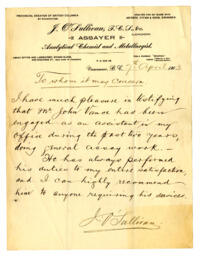 PROVINCIAL ASSAYER OF BRITISH COLUMBIA
J. O'Sullivan, F.C.S.
ASSAYER
Analytical Chemist and Metallurgist.
Vancouver, B.C. 7th April
To whom it may concern
I have much pleasure in testifying
that Mr John Vance had been
engaged as an assistant in my
office during the past two years,
doing general assay work.
He has always performed
his duties to my entire satisfaction,
and I can highly recommend
him to anyone requiring his services.
J O'Sullivan